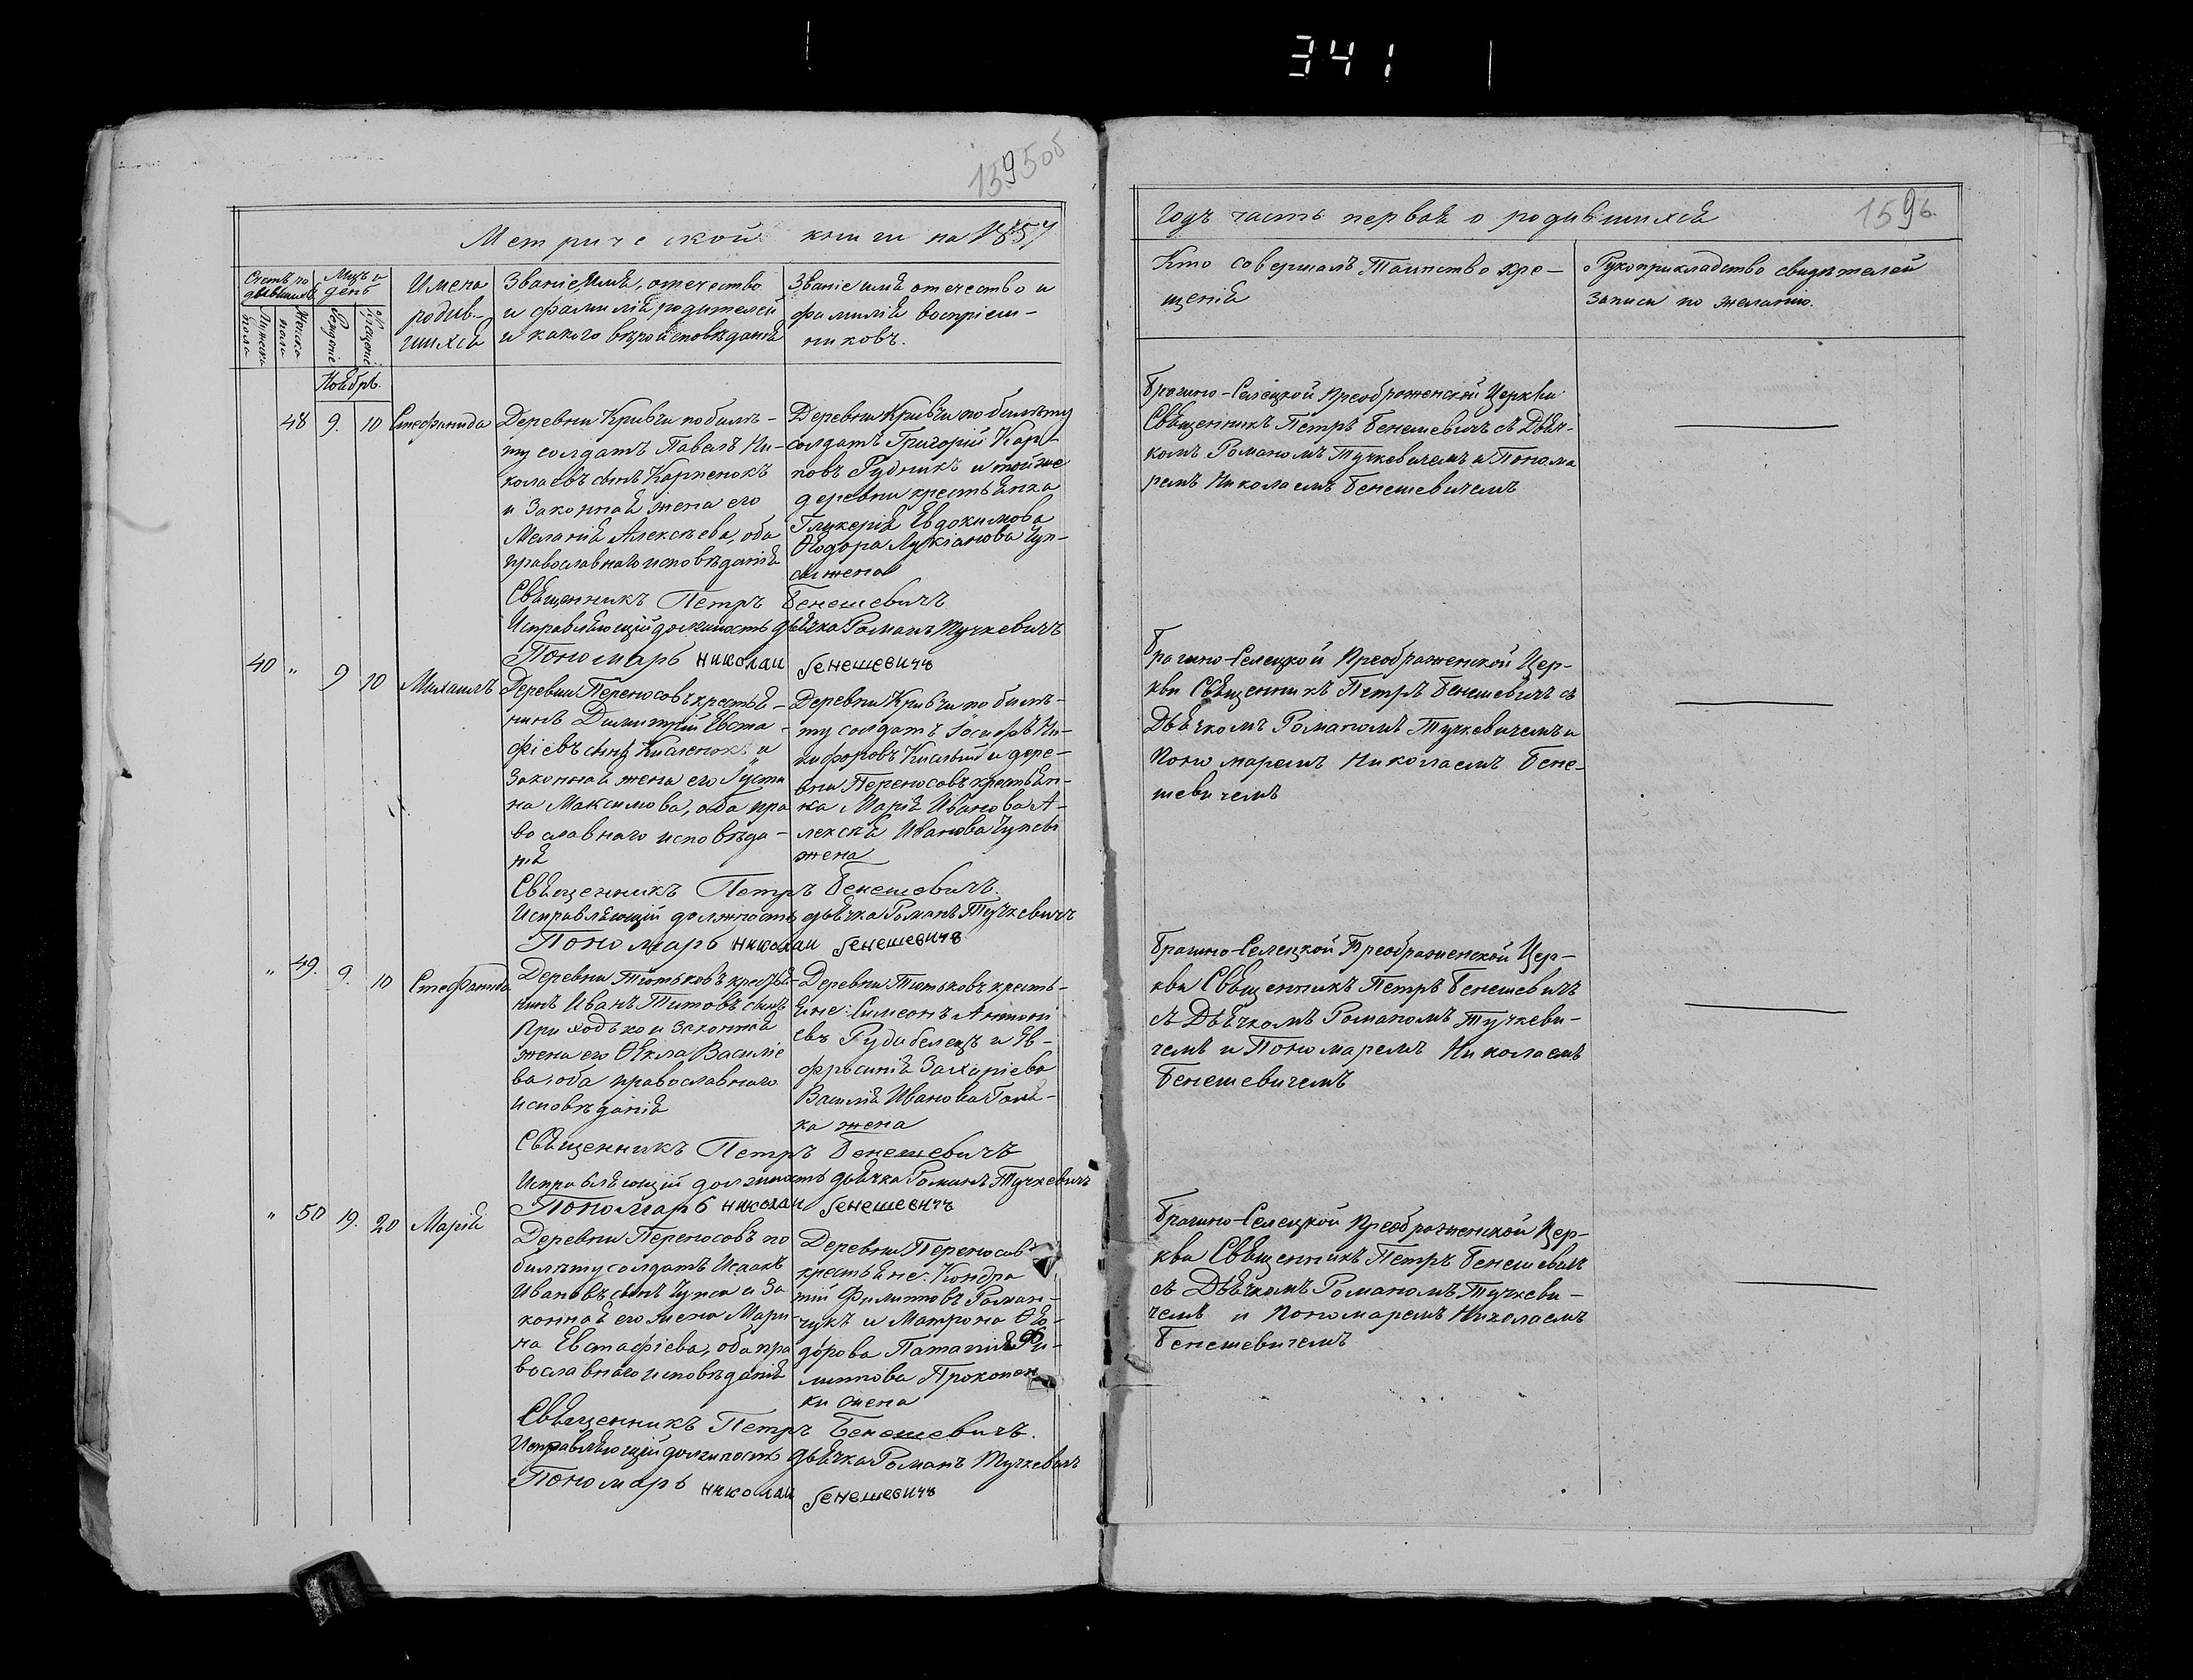 341
1595об
Метрической книги на 1857
Счетъ родившихся
Мужеска пола
Женска пола
Мцъ и день
Рожденіе
Крещеніе
Имена родив-
шихся
Званіе, имя, отечество
и фамилія родителей
и какого вѣроисповѣданія
Званіе имя отечество и
фамилія воспріем-
никовъ.
Ноябрь.
48 9. 10 Стефанида
Деревни Кривчи по билѣ-
ту солдатъ Павелъ Ни-
колаевъ сынъ Карпенокъ
и законная жена его
Меланія Алексѣева, оба
православнаго исповѣданія
Деревни Кривчи по билѣту
солдатъ Григорій Кар-
повъ Рудникъ и той же
деревни крестьянка
Гликерія Евдокимова
Ѳеодора Лукіанова Цуп-
сы жена
Священникъ Петръ Бенешевичъ
Исправляющій должность дьячка Романъ Тучкевичъ
Пономарь николаи бенешевичъ
40 " 9 10 Михаилъ
Деревни Переносовъ крестья-
нинъ Димитрій Евста-
фіевъ сынъ Кисленокъ и
законная жена его Іусти
на Максимова, оба пра
вославнаго исповѣда-
нія
Деревни Кривчи по билѣ-
ту солдатъ Іосифъ Ни-
кифоровъ Кислый и дере-
вни Переносовъ крестьян-
ка Марія Иванова А-
лексѣя Иванова Цупсы
жена
Священникъ Петръ Бенешевичъ.
Исправляющій должность дьячка Романъ Тучкевичъ
Пономарь николаи бенешевичъ
" 49. 9. 10 Стефанида
Деревни Тютьковъ крестья-
нинъ Иванъ Титовъ сынъ
Приходько и законная
жена его Ѳекла Василіе
ва, оба православнаго
исповѣданія
Деревни Тютьковъ кресть-
яне: Симеонъ Антоні
евъ Рудабелецъ и Ев-
фросинія Захаріева
Василія Иванова Гамя-
ка жена
Священникъ Петръ Бенешевичъ
Исправляющій должность дьячка Романъ Тучкевичъ
Пономарь николаи бенешевичъ
" 50 19. 20 Марія
Деревни Переносовъ по
билѣту солдатъ Исаакъ
Ивановъ сынъ Цупса и за
конная его жена Мари-
на Евстафіева, оба пра
вославнаго исповѣданія
Деревни Переносовъ
крестьяне: Кондра
тій Филипповъ Роман-
чукъ и Матрона Ѳео-
дорова Потапія Фи-
липпова Прокопен
ки жена
Священникъ Петръ Бенешевичъ.
Исправляющій должность дьячка Романъ Тучкевичъ
Пономарь николаи бенешевичъ
1596
Годъ часть первая о родившихся
Кто совершалъ Таинство кре-
щенія
Рукоприкладство свидѣтелей
записи по желанію.
Брагино-Селецкой Преображенской Церкви
Священникъ Петръ Бенешевичъ съ Дьяч-
комъ Романомъ Тучкевичемъ и Понома
ремъ Николаемъ Бенешевичемъ
Брагино-Селецкой Преображенской Цер-
кви Священникъ Петръ Бенешевичъ съ
Дьячкомъ Романомъ Тучкевичемъ и
Пономаремъ Николаемъ Бене-
шевичемъ
Брагино-Селецкой Преображенской Цер-
кви Священникъ Петръ Бенешевичъ
съ Дьячкомъ Романомъ Тучкеви-
чемъ и Пономаремъ Николаемъ
Бенешевичемъ
Брагино-Селецкой Преображенской Цер-
кви Священникъ Петръ Бенешевичъ
съ Дьячкомъ Романомъ Тучкеви-
чемъ и Пономаремъ Николаемъ
Бенешевичемъ